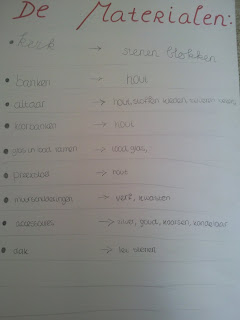 De Materialen:
• kerk → stenen blokken
• banken → hout
• altaar → hout stoffen
• koorbanken → hout
• glas in lood ramen → lood, glas,
• preekstoel → hout
• muurschilderingen → verf, kwasten
• accessoires → zilver, goud, kaarsen, kandelaar
• dak →